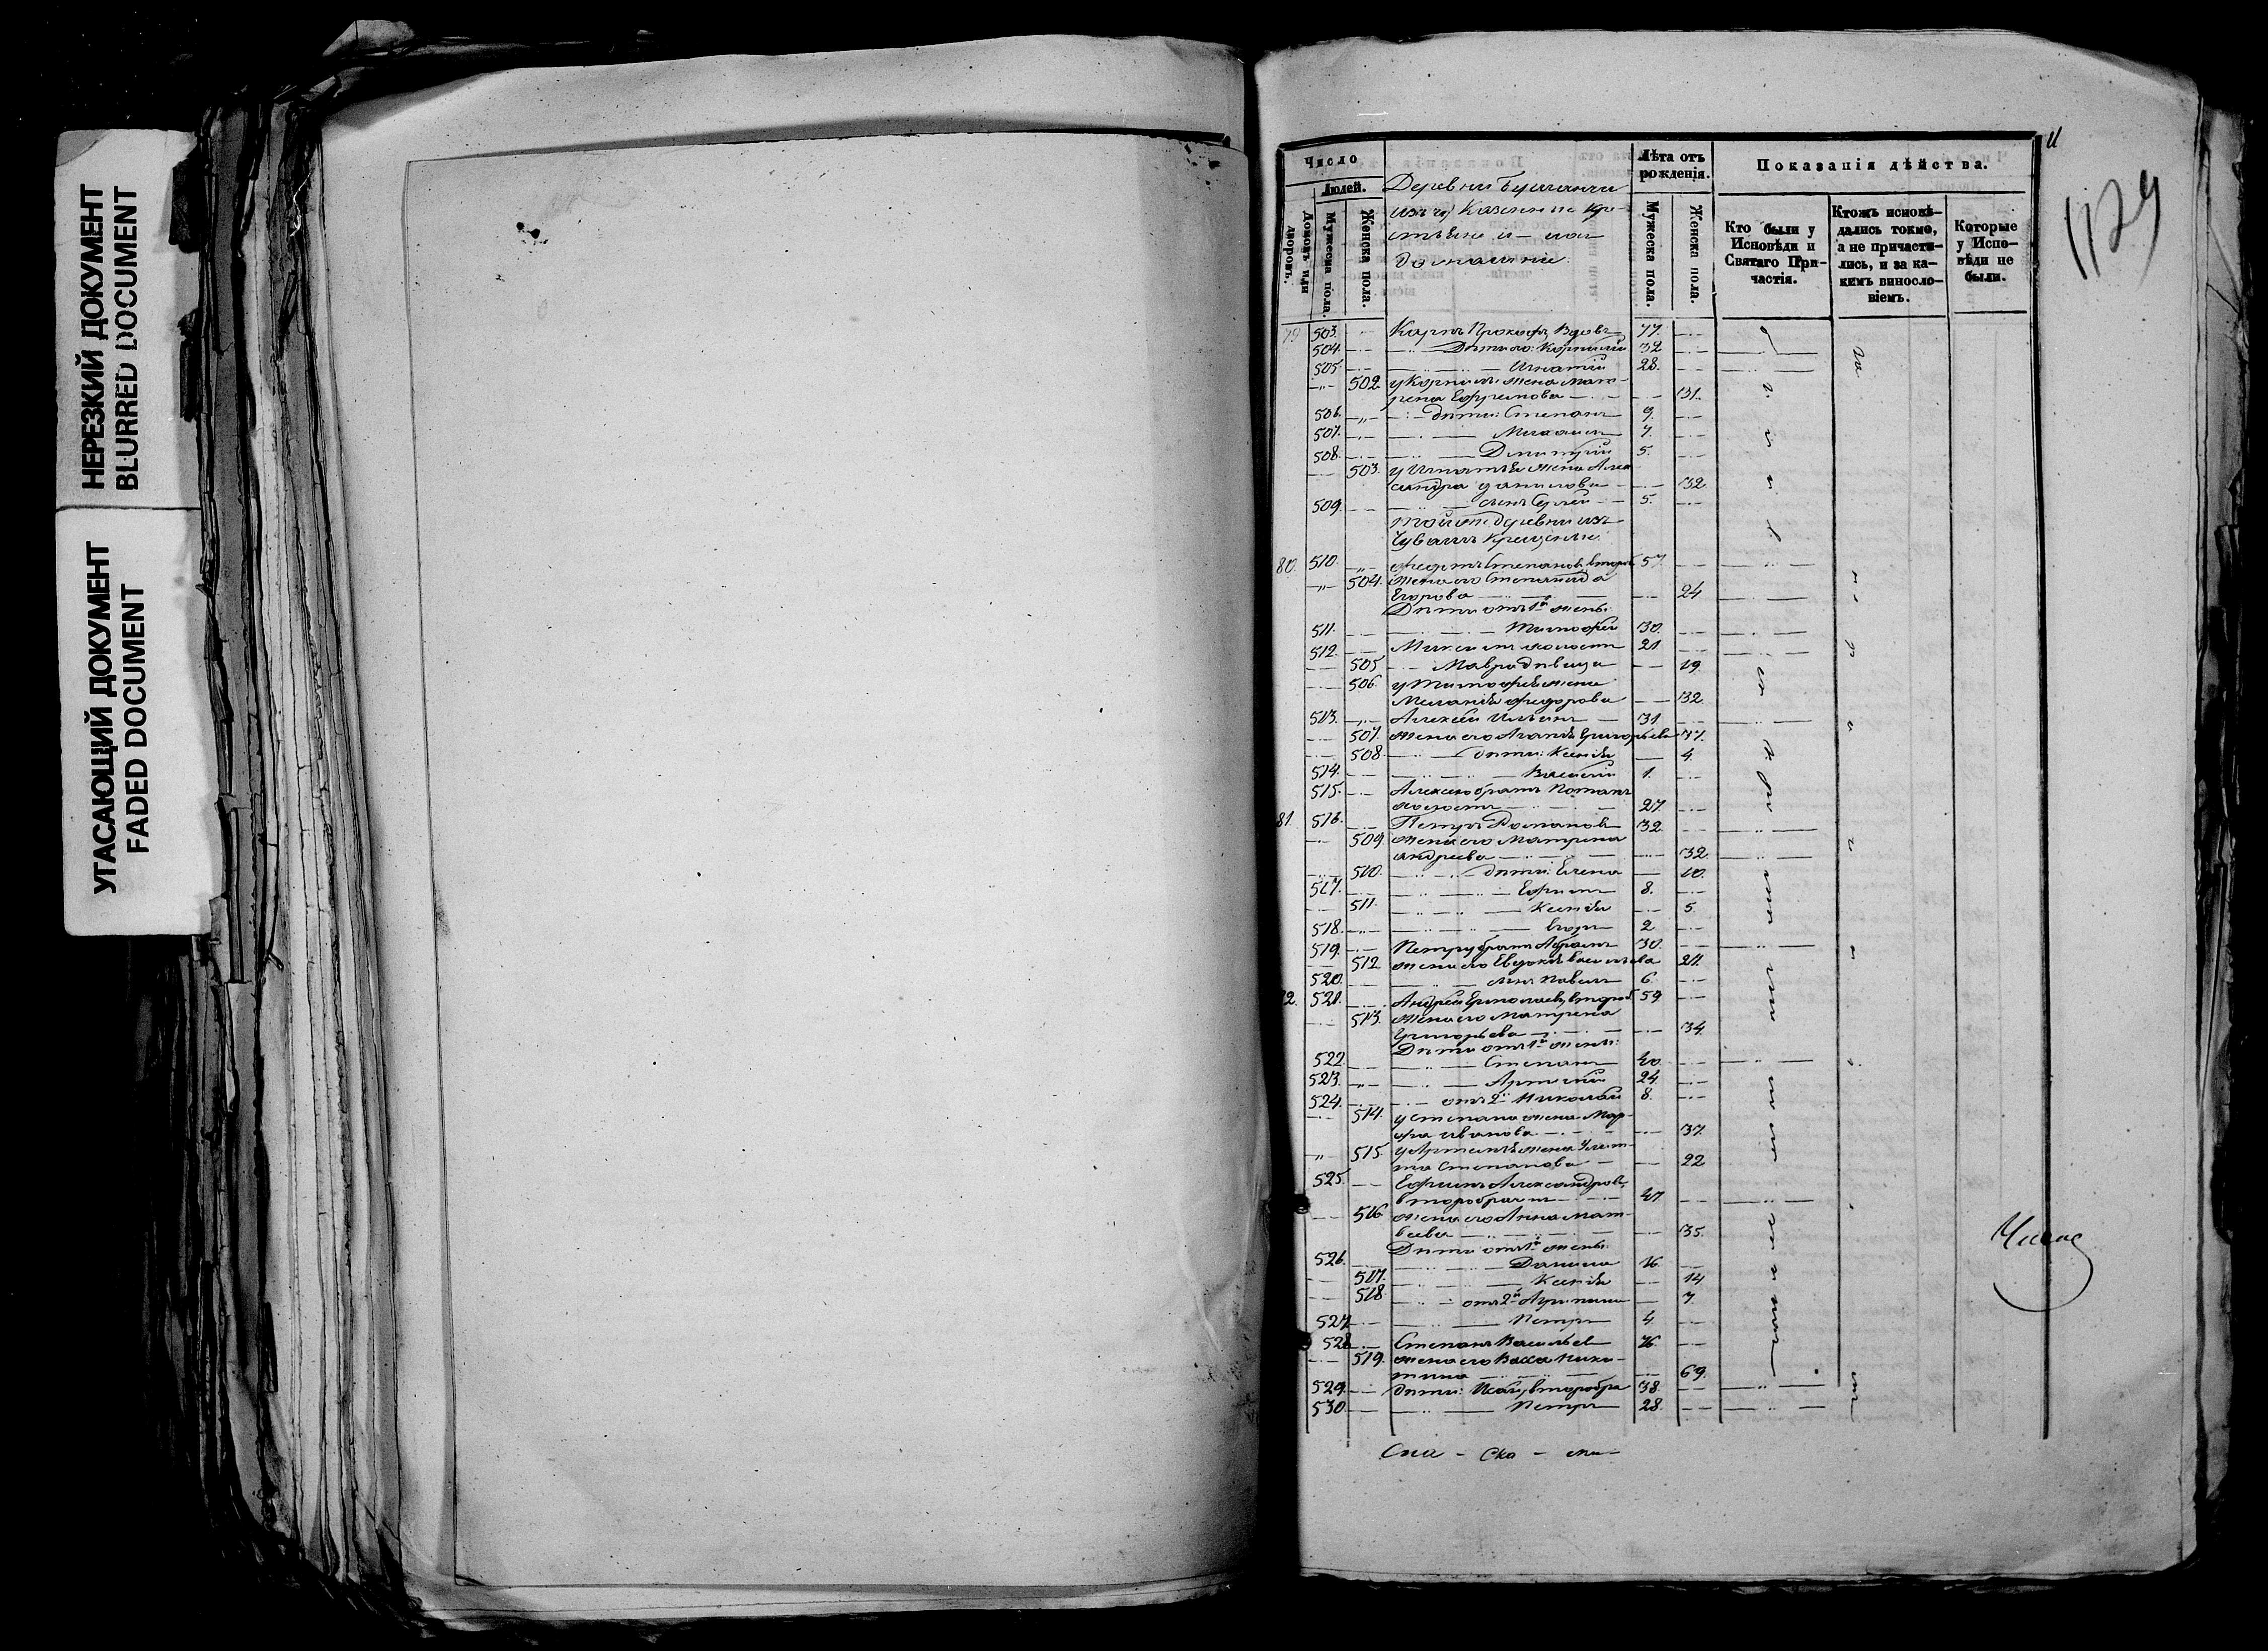 НЕРЕЗКИЙ ДОКУМЕНТ
BLURRED DOCUMENT
УГАСАЮЩИЙ ДОКУМЕНТ
FADED DOCUMENT
1129
Число
Людей.
Домовъ или дворовъ.
Мужеска пола.
Женска пола.
Деревни
казенные кре-
стьяне и
домашни:
Лѣта отъ рожденія.
Мужеска пола.
Женска пола.
Показанія дѣйства.
Кто были у Исповѣди и Святаго При-частія.
Ктожъ исповѣ-дались токмо, а не причасти-лись, и за ка-кимъ винослo-віемъ.
Которые у Испо-вѣди не были.
79 503. Карпъ Прокофьевъ Вдовъ 77.
504. Дѣти его: Корнилій 32
505. Игнатій 28.
502. у Корнилія жена Мат-
рена Ефремова 31.
506. дѣти: Степанъ 9.
507. Михаилъ 7.
508. Димитрій 5.
503. у Игнатія жена Алек
сандра Данилова 32
509. сынъ Сергей 5.
той же деревни изъ
Чувашъ крещеные
80. 510. Федотъ Степановъ, второб 57.
504. жена его Степанида
Егорова 24
Дѣти отъ 1й жены:
511. Тимофей 30.
512. Максимъ холостъ 21
505 Мавра дѣвица 19.
506. у Тимофея жена
Меланія Федорова 32.
513. Алексей Ильинъ 31.
507. жена его Агапія Григорьева 37.
508. дѣти: Ксенія 4.
514. Василій 1.
515. Алексею братъ Потапъ
холостъ 27.
81. 516. Петръ Романовъ 32
509. жена его Матрена
Андреева 32.
510. дѣти: Елена 10.
517. Ефимъ 8.
511. Ксенія 5.
518. Егоръ 2
519. Петру братъ Абрамъ 30.
512 жена его Евдокія Васильева 21.
520. сынъ Павелъ 6.
82. 521. Андрей Ермолаевъ, второб 59
513. жена его Матрена
Григорьева 34.
Дѣти отъ 1й жены:
522 Степанъ 40.
523. Артемій 24.
524. отъ 2й Николай 8.
514. у Степана жена Мар-
фа Иванова 37.
515. у Артемія жена Улит-
та Степанова 22
525. Ефимъ Александровъ,
второбрачн 47
516 жена его Анна Мат-
веева 35.
Дѣти отъ 1й жены:
526. Данила 16.
517. Ксенія 14
518. отъ 2й Агрипина 7.
527 Петръ 4.
528 Степанъ Васильевъ 76.
519. жена его Васса Ники-
тина 69.
529. дѣти: Исай, второбра 38.
530. Петръ 28.
Спа - ска - го